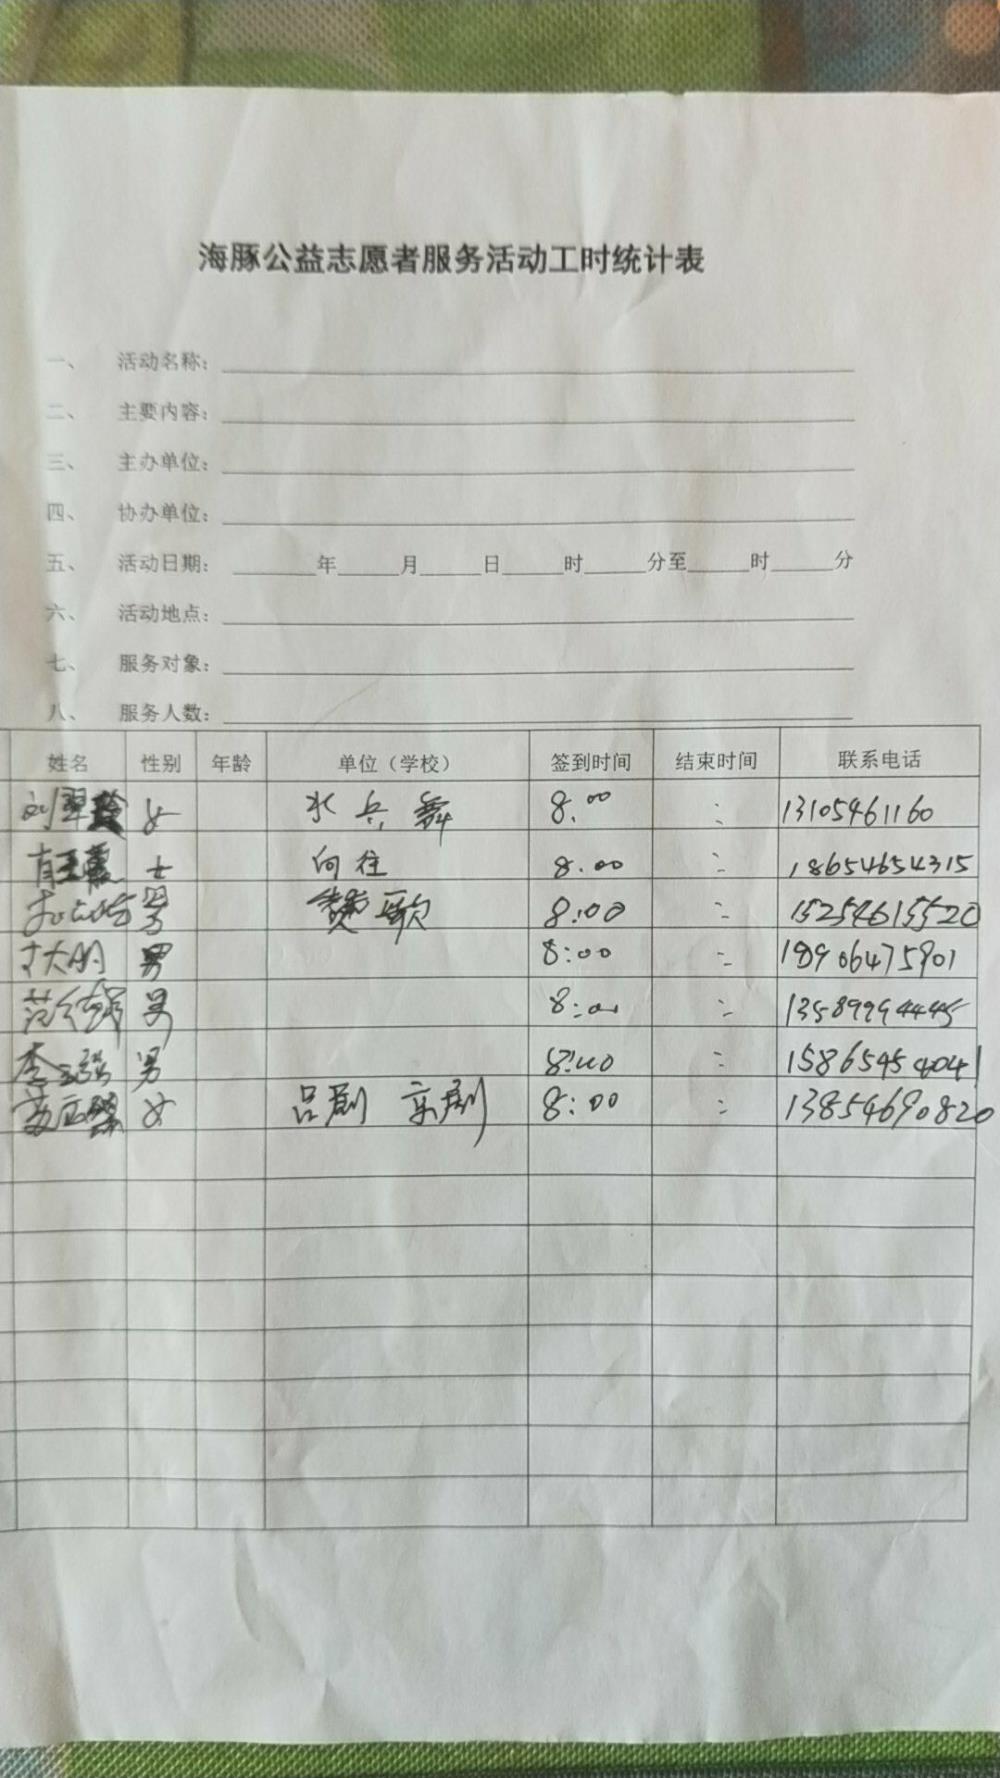 海豚公益志愿者服务活动工时统计表
一、 活动名称：
二、 主要内容：
三、 主办单位：
四、 协办单位：
五、 活动日期： 年 月 日 时 分至 时 分
六、 活动地点：
七、 服务对象：
八、 服务人数：
姓名 性别 年龄 单位（学校） 签到时间 结束时间 联系电话
刘翠 女 水兵舞 8:00 : 13105461160
向往 8:00 : 18654654315
男 歌 8:00 : 15254615520
男 8:00 : 18906475901
范 男 8:00 : 13589994445
李 男 8:00 : 15865454041
女 吕剧 京剧 8:00 : 13854690820